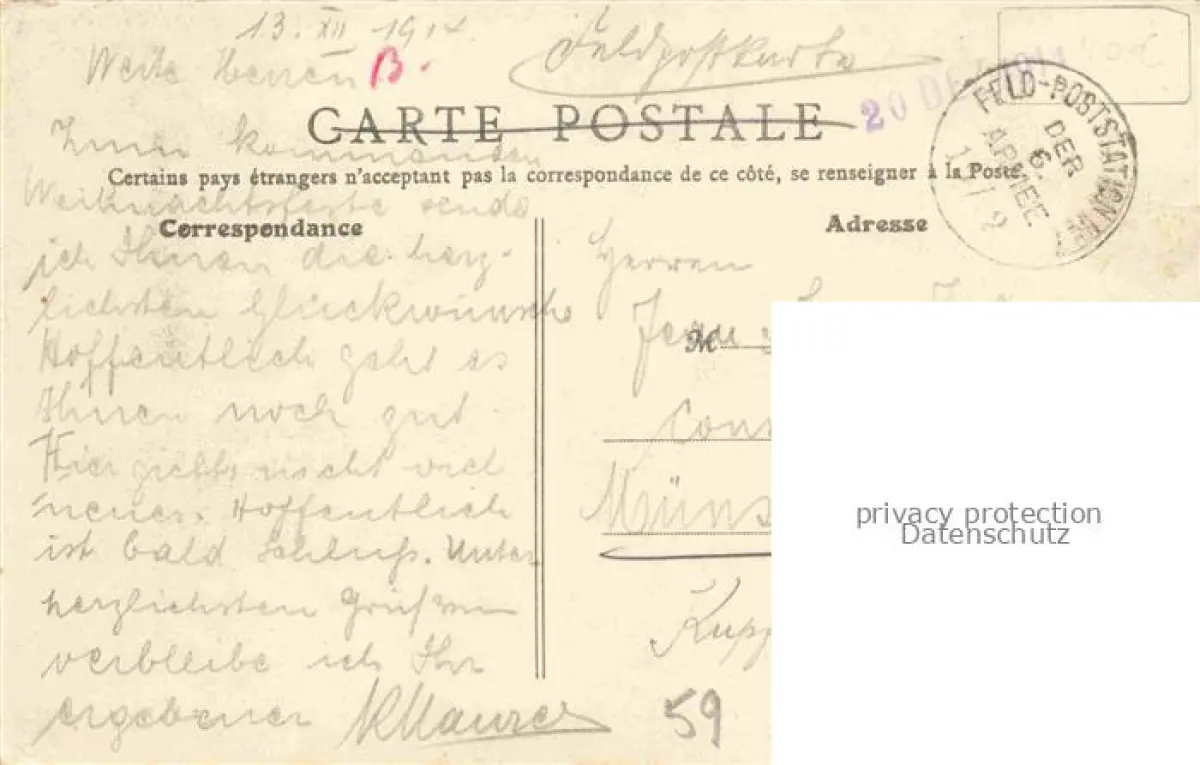 13. XII 1914.
Werte Herren B.
Feldpostkarte
20 DE
FELD-POSTSTATION
DER
6.
ARMEE
CARTE POSTALE
Certains pays étrangers n'acceptent pas la correspondance de ce côté, se renseigner à la Poste.
Correspondance
Zum kommenden
Weihnachtsfeste sende
ich Ihnen die herz-
lichsten Glückwünsche
Hoffentlich geht es
Ihnen noch gut.
Hier giebts nicht viel
neues. Hoffentlich
ist bald Schluß. Unter
herzlichsten Grüßen
verbleibe ich Ihr
ergebener
Adresse
Herren
M
Müns
Kupf
59
privacy protection
Datenschutz